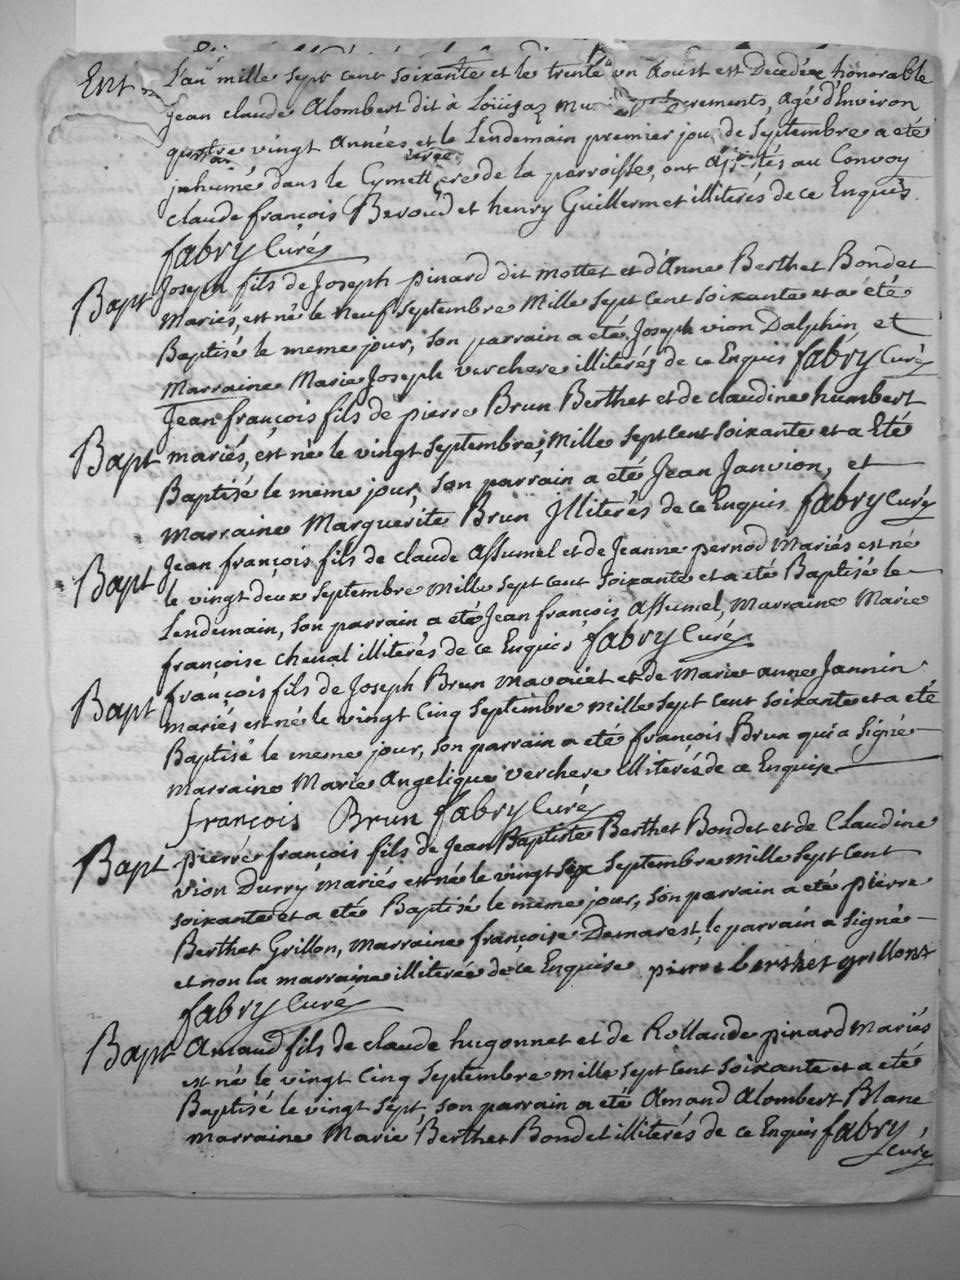 Ent L'an mille sept cent soixante et le trente un Aoust est Decedéz honorable
Jean claude Alombert dit à Loüisaz muni sacrements, agé d'Environ
quatre vingt Années et le Lendemain premier jou de Septembre a eté
jnhumé dans le Cymettiere de la parroisse, ont assistés au Convoy
claude françois Beroud et henry Guillermet illiterés de ce Enquis.
fabry Curé
Bapt Joseph fils de Joseph pinard dit mottet et d'Anne Berthet Bondet
Mariés, est né le Neuf Septembre Mille Sept Cent Soixante et a eté
Baptisé le meme jour, Son parrain a eté Joseph vion Dalphin et
Marraine Marie Joseph verchere illiterés de ce Enquis fabry Curé
Jean françois fils de pierre Brun Berthet et de claudine humbert
Bapt mariés, est né le vingt Septembre, Mille Sept Cent Soixante et a Eté
Baptisé le meme jour, Son parrain a eté Jean Janvion, et
marraine Marguerite Brun Jlliterés de ce Enquis fabry Curé
Bapt Jean françois fils de claude Assumel et de Jeanne pernod Mariés est né
le vingt deux Septembre Mille Sept Cent Soixante et a eté Baptisé le
Lendemain, Son parrain a eté Jean françois Assumel, Marraine Marie
françoise cheval illiterés de ce Enquis fabry Curé
Bapt françois fils de Joseph Brun et de Marie anne Jannin
mariés est né le vingt Cinq Septembre mille Sept Cent Soixante et a eté
Baptisé le meme jour, Son parrain a eté françois Brun qui a Signé
marraine Marie Angelique verchere illiterés de ce Enquise
françois Brun fabry Curé
Bapt pierre françois fils de Jean Baptiste Berthet Bondet et de Claudine
vion Durry mariés est né le vingt Six Septembre mille Sept Cent
soixante et a eté Baptisé le meme jour, Son parrain a eté pierre
Berthet Grillon, marraine françoise Demarest, le parrain a Signé
et non la marraine illiterée de ce Enquise pierre berthet grillont
fabry Curé
Bapt Amand fils de claude hugonnet et de Rollande pinard Mariés
est né le vingt Cinq Septembre mille Sept Cent Soixante et a eté
Baptisé le vingt Sept, Son parrain a eté Amand Alombert Blanc
marraine Marie Berthet Bondet illiterés de ce Enquis fabry
Curé